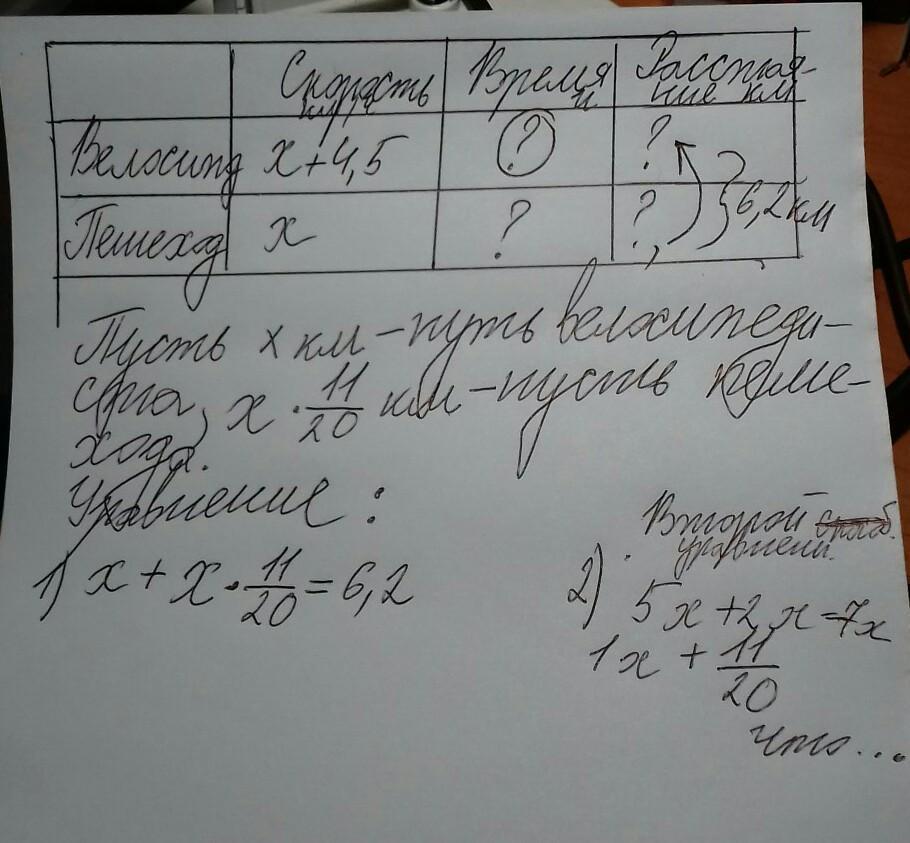 Скорость Время Расстоя-
км/ч ч ние км
Велосипед x+4,5 ? ?
6,2 км
Пешеход x ? ?
Пусть x км – путь велосипеди-
ста, x · 11/20 км – пусть пеше-
хода.
Уравнение:
1) x + x · 11/20 = 6,2
Второй способ.
уравнени.
2) 5x + 2x = 7x
1x + 11/20
что...